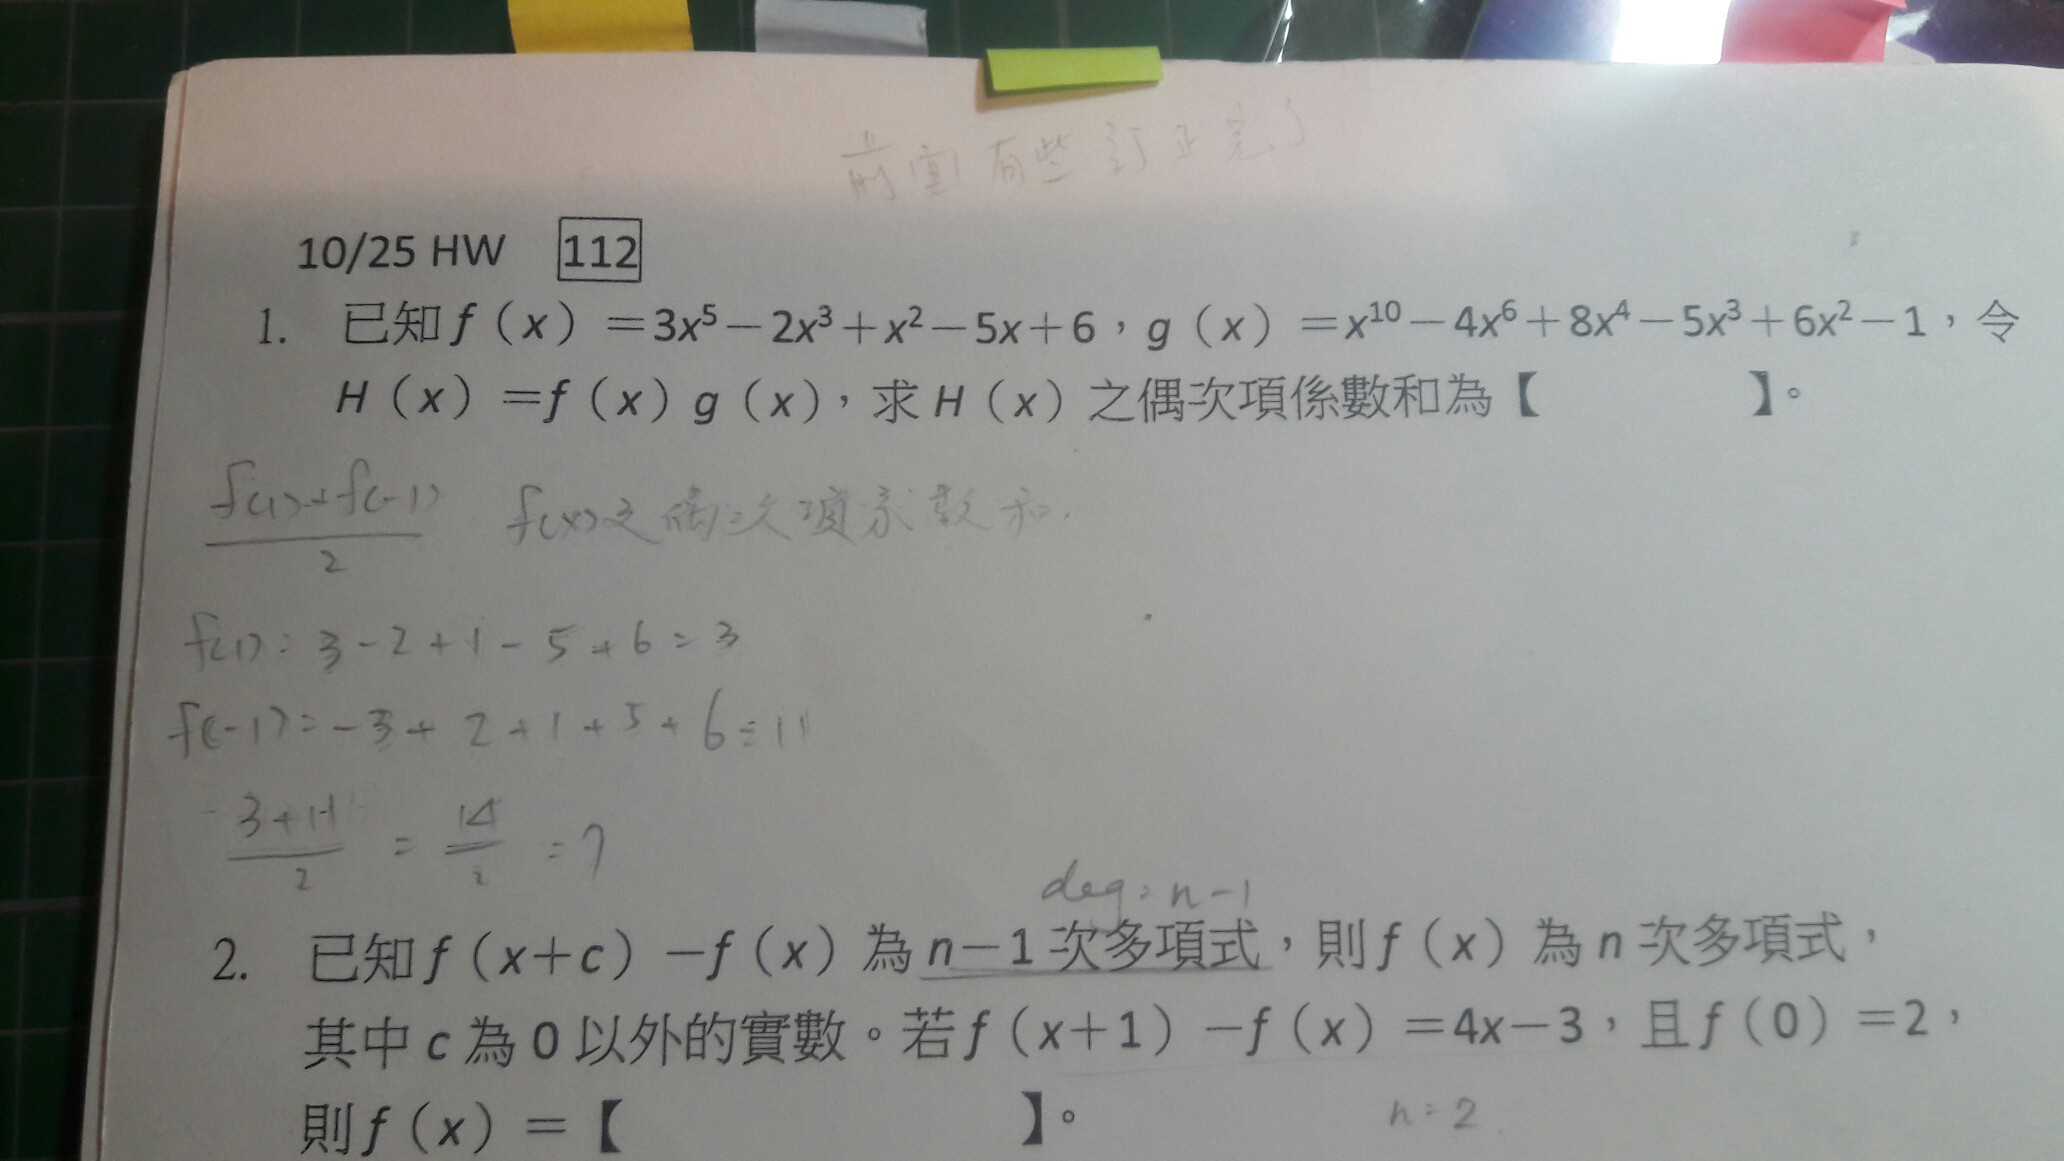 前面有些訂正完了
10/25 HW 112
1. 已知 f（x）＝3x⁵－2x³＋x²－5x＋6，g（x）＝x¹⁰－4x⁶＋8x⁴－5x³＋6x²－1，令
H（x）＝f（x）g（x），求 H（x）之偶次項係數和為【 】。
f(1)+f(-1)
2
f(x)之偶次項係數和.
f(1)=3-2+1-5+6=3
f(-1)=-3+2+1+5+6=11
3+11/2 = 14/2 =7
deg=n-1
2. 已知 f（x＋c）－f（x）為 n－1 次多項式，則 f（x）為 n 次多項式，
其中 c 為 0 以外的實數。若 f（x＋1）－f（x）＝4x－3，且 f（0）＝2，
則 f（x）＝【 】。
n=2